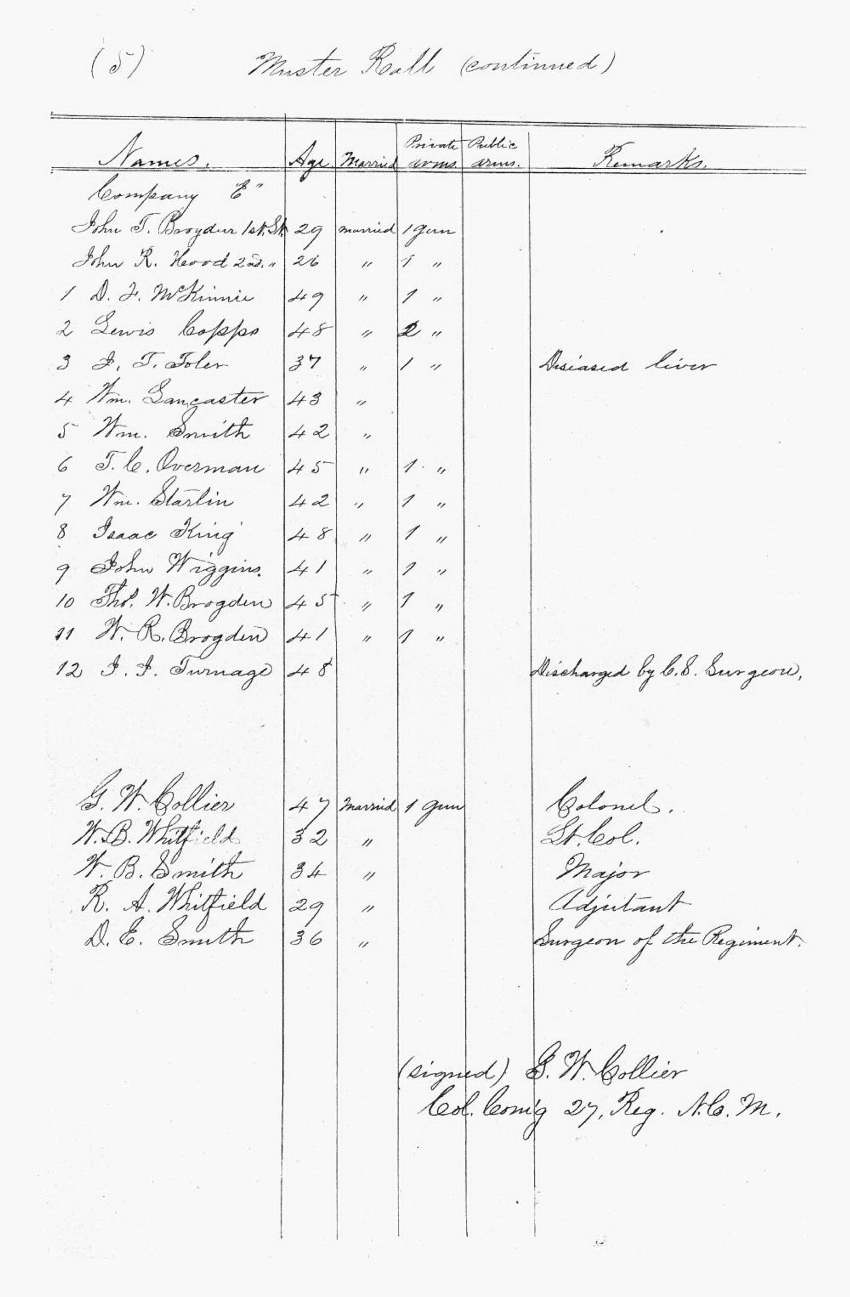 (5) Muster Roll (continued)
Names. Age Married Private arms. Public arms. Remarks.
Company "E"
John T. Brogden 1st. Lt. 29 married 1 gun
John R. Hood 2nd. " 26 " 1 "
1 D. F. McKinnie 49 " 1 "
2 Lewis Copps 48 " 2 "
3 J. T. Toler 37 " 1 " Diseased liver
4 Wm. Lancaster 43 "
5 Wm. Smith 42 "
6 T. C. Overman 45 " 1 "
7 Wm. Starlin 42 " 1 "
8 Isaac King 48 " 1 "
9 John Wiggins. 41 " 1 "
10 Thos. W. Brogden 45 " 1 "
11 W. R. Brogden 41 " 1 "
12 J. J. Turnage 48 Discharged by C. S. Surgeon,
G. W. Collier 47 Married 1 gun Colonel.
W. B. Whitfield 32 " Lt. Col.
W. B. Smith 34 " Major
R. A. Whitfield 29 " Adjutant
D. E. Smith 36 " Surgeon of the Regiment.
(signed) G. W. Collier
Col. Com'g 27, Reg. N. C. M.